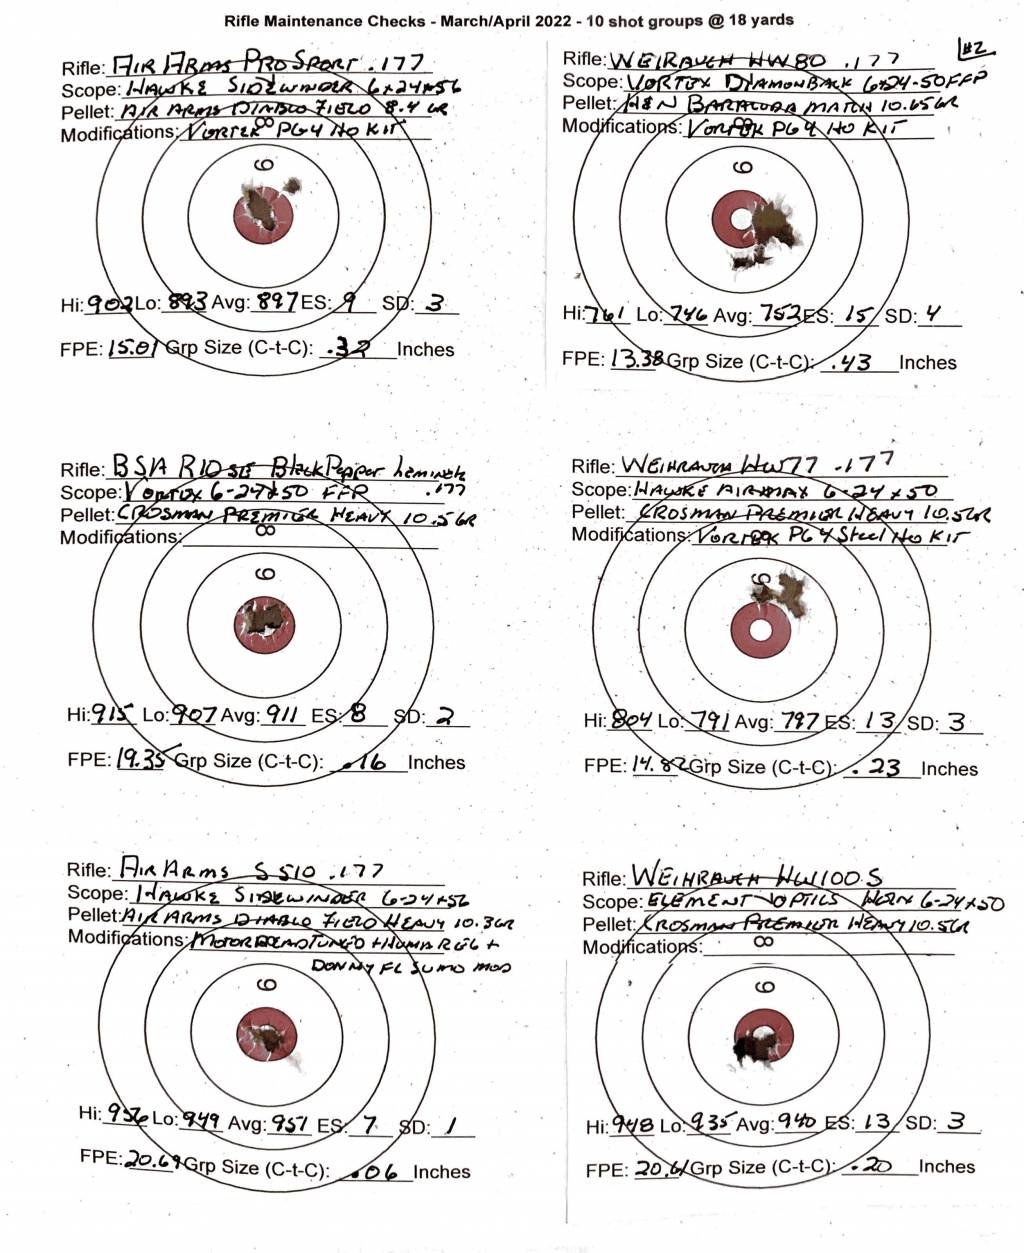 Rifle Maintenance Checks - March/April 2022 - 10 shot groups @ 18 yards
#2
Rifle: AIR ARMS PRO SPORT .177
Scope: HAWKE SIDEWINDER 6x24x56
Pellet: AIR ARMS DIABLO FIELD 8.4 GR
Modifications: VORTEK PG4 HO KIT
8
9
Hi: 902 Lo: 893 Avg: 897 ES: 9 SD: 3
FPE: 15.01 Grp Size (C-t-C): .32 Inches
Rifle: WEIRAUCH HW80 .177
Scope: VORTEX DIAMONBACK 6x24-50 FFP
Pellet: H&N BARACUDA MATCH 10.65GR
Modifications: VORTEK PG4 HO KIT
8
9
Hi: 761 Lo: 746 Avg: 752 ES: 15 SD: 4
FPE: 13.38 Grp Size (C-t-C): .43 Inches
Rifle: BSA R10 SE Black Pepper Laminate
Scope: Vortex 6-24x50 FFP .177
Pellet: CROSMAN PREMIER HEAVY 10.5 GR
Modifications:
8
9
Hi: 915 Lo: 907 Avg: 911 ES: 8 SD: 2
FPE: 19.35 Grp Size (C-t-C): .16 Inches
Rifle: WEIHRAUCH HW77 .177
Scope: HAWKE AIRMAX 6-24x50
Pellet: CROSMAN PREMIER HEAVY 10.5GR
Modifications: VORTEK PG4 Steel Ho KIT
8
9
Hi: 804 Lo: 791 Avg: 797 ES: 13 SD: 3
FPE: 14.82 Grp Size (C-t-C): .23 Inches
Rifle: AIR ARMS S510 .177
Scope: HAWKE SIDEWINDER 6-24x56
Pellet: AIR ARMS DIABLO FIELD HEAVY 10.3GR
Modifications: MOTORHEAD TUNED + HUMA REG +
DONNY FL SUMO MOD
9
Hi: 956 Lo: 949 Avg: 951 ES: 7 SD: 1
FPE: 20.69 Grp Size (C-t-C): .06 Inches
Rifle: WEIHRAUCH HW100 S
Scope: ELEMENT OPTICS HELIX 6-24x50
Pellet: CROSMAN PREMIER HEAVY 10.5GR
Modifications:
8
9
Hi: 948 Lo: 935 Avg: 940 ES: 13 SD: 3
FPE: 20.61 Grp Size (C-t-C): .20 Inches